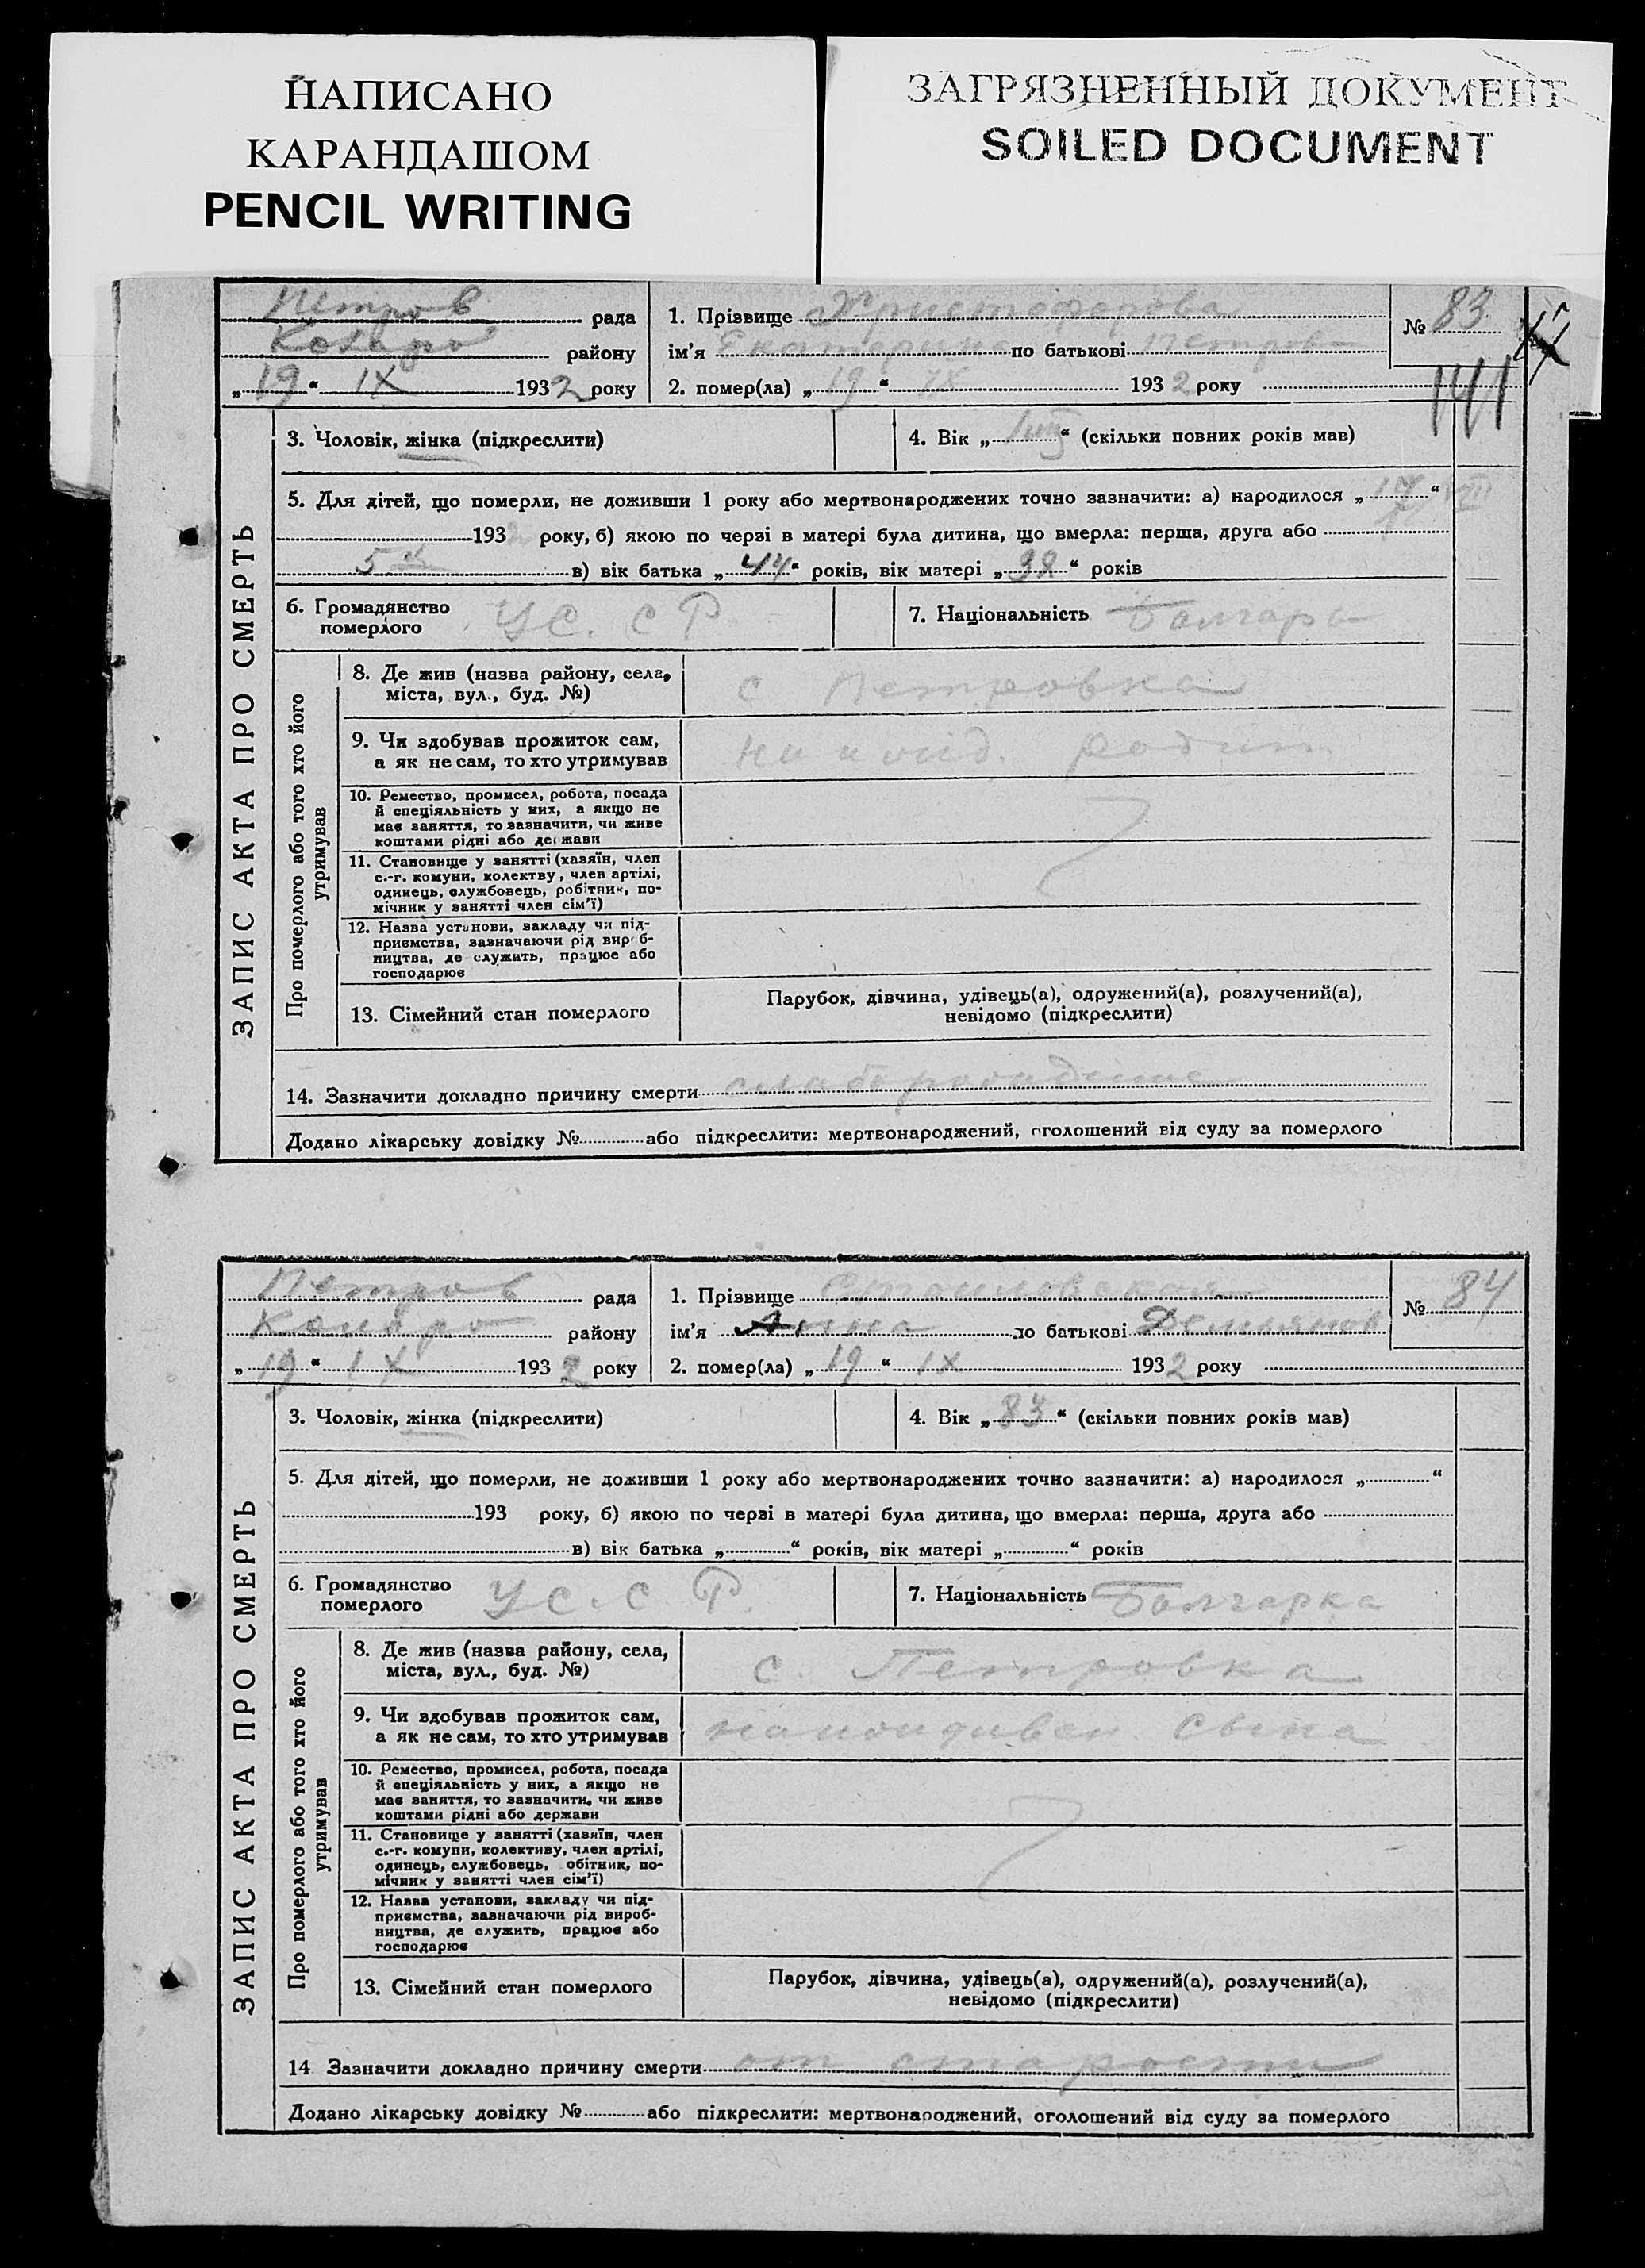 НАПИСАНО
КАРАНДАШОМ
PENCIL WRITING
ЗАГРЯЗНЕННЫЙ ДОКУМЕНТ
SOILED DOCUMENT
Петров рада
Коларо району
„19“ IX 1932 року
1. Прізвище Христофорова
ім'я Екатерина по батькові Петров
2. помер(ла) „19“ IX 1932 року
№ 83
141
ЗАПИС АКТА ПРО СМЕРТЬ
3. Чоловік, жінка (підкреслити)
4. Вік „“ (скільки повних років мав)
5. Для дітей, що померли, не доживши 1 року або мертвонароджених точно зазначити: а) народилося „17“ VIII
1932 року, б) якою по черзі в матері була дитина, що вмерла: перша, друга або
5 в) вік батька „44“ років, вік матері „38“ років
6. Громадянство
померлого
УС.СР
7. Національність Болгары
Про померлого або того хто його
утримував
8. Де жив (назва району, села,
міста, вул., буд. №)
с Петровка
9. Чи здобував прожиток сам,
а як не сам, то хто утримував
на ижд. родит
10. Ремество, промисел, робота, посада
й спеціяльність у них, а якщо не
має заняття, то зазначити, чи живе
коштами рідні або держави
11. Становище у занятті (хазяїн, член
с.-г. комуни, колектву, член артілі,
одинець, службовець, робітник, по-
мічник у занятті член сім'ї)
12. Назва установи, закладу чи під-
приємства, зазначаючи рід вироб-
ництва, де служить, працює або
господарює
13. Сімейний стан померлого
Парубок, дівчина, удівець(а), одружений(а), розлучений(а),
невідомо (підкреслити)
14. Зазначити докладно причину смерти слаборождение
Додано лікарську довідку № або підкреслити: мертвонароджений, оголошений від суду за померлого
Петров рада
Коларо району
„19“ IX 1932 року
1. Прізвище Стоиловская
ім'я Анна по батькові Демьянов
2. помер(ла) „19“ IX 1932 року
№ 84
ЗАПИС АКТА ПРО СМЕРТЬ
3. Чоловік, жінка (підкреслити)
4. Вік „83“ (скільки повних років мав)
5. Для дітей, що померли, не доживши 1 року або мертвонароджених точно зазначити: а) народилося „“
193 року, б) якою по черзі в матері була дитина, що вмерла: перша, друга або
в) вік батька „“ років, вік матері „“ років
6. Громадянство
померлого
УС.СР.
7. Національність Болгарка
Про померлого або того хто його
утримував
8. Де жив (назва району, села,
міста, вул., буд. №)
с. Петровка
9. Чи здобував прожиток сам,
а як не сам, то хто утримував
сына
10. Ремество, промисел, робота, посада
й спеціяльність у них, а якщо не
має заняття, то зазначити, чи живе
коштами рідні або держави
11. Становище у занятті (хазяїн, член
с.-г. комуни, колективу, член артілі,
одинець, службовець, обітник, по-
мічник у занятті член сім'ї)
12. Назва установи, закладу чи під-
приємства, зазначаючи рід вироб-
ництва, де служить, працює або
господарює
13. Сімейний стан померлого
Парубок, дівчина, удівець(а), одружений(а), розлучений(а),
невідомо (підкреслити)
14 Зазначити докладно причину смерти от старости
Додано лікарську довідку № або підкреслити: мертвонароджений, оголошений від суду за померлого